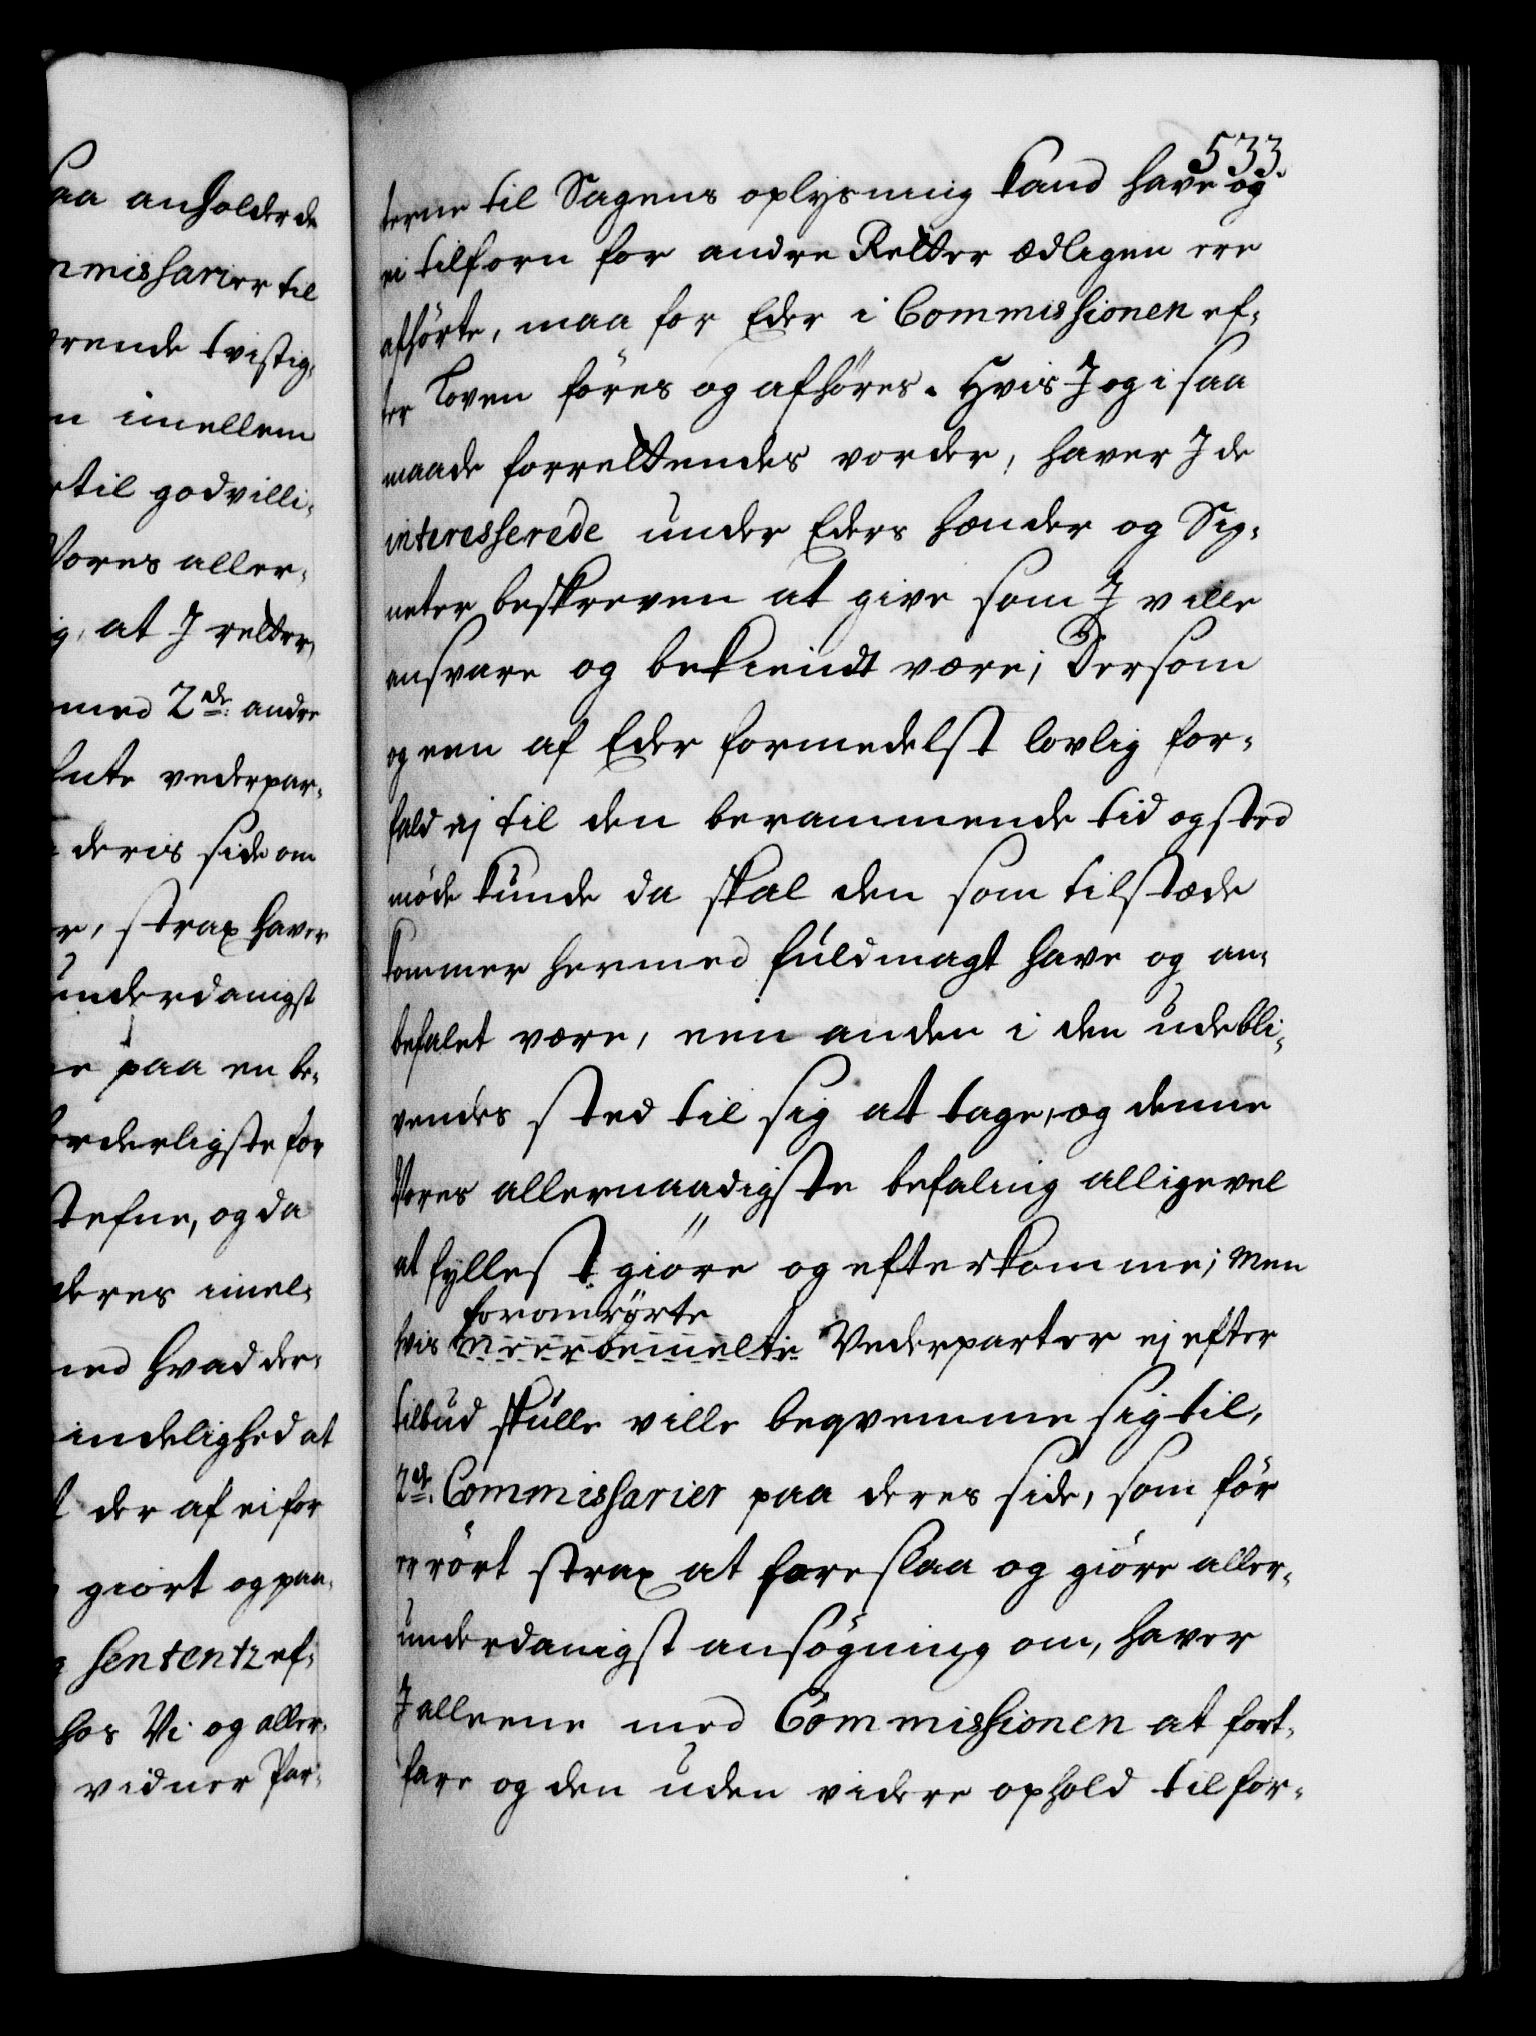 saa anholder de
mmissarier til
ørende tvistig¬
n imellem
til godvilli¬
Vores aller¬
g, at J retter
med 2de andre
hente vederpar¬
deris side om
r, strax haver
underdanigst
paa en be¬
orderligste for
stefne, og da
deres imel¬
med hvad der¬
indelighed at
t der af ei for
giort og paa¬
sententz ef¬
hos Vi og aller¬
vidner Par¬
533.
terne til Sagens oplysning kand have og
ei tilforn for andre Retter ædligen ere
afhörte, maa for Eder i Commissionen ef¬
ter Loven föres og afhöres. Hvis J og i saa
maade forrettendes vorder, haver J de
interesserede under Eders hænder og Sig¬
neter beskreven at give som J ville
ansvare og bekiendt være; Dersom
og een af Eder formedelst lovlig for¬
fald ej til den berammende tid og sted
möde kunde da skal den som tilstæde
kommer hermed fuldmagt have og an¬
befalet være, een anden i den udebli¬
vendes sted til sig at tage, og denne
Vores allernaadigste befaling alligevel
at fyllest giöre og efterkomme; Men
foromrörte
hvis Meerbemelte Vederparter ej efter
tilbud skulle ville beqvemme sig til,
2de Commissarier paa deres side, som för
er rört strax at foreslaa og giöre aller¬
underdanigst ansögning om, haver
J alleene med Commissionen at fort¬
fare og den uden videre ophold til for¬